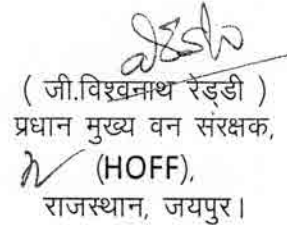 ( जी.विश्वनाथ रेड्डी )
प्रधान मुख्य वन संरक्षक,
(HOFF),
राजस्थान, जयपुर।